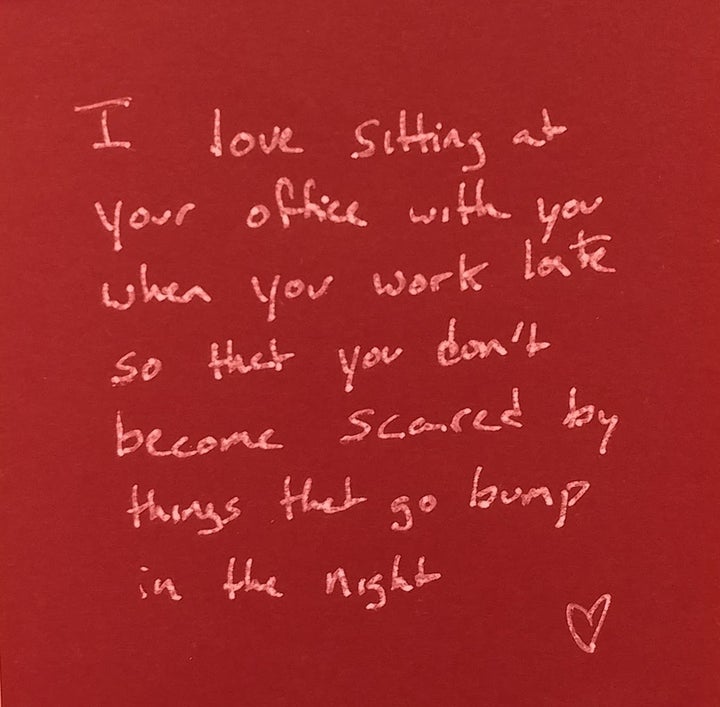 I love sitting at
your office with you
when you work late
so that you don't
become scared by
things that go bump
in the night